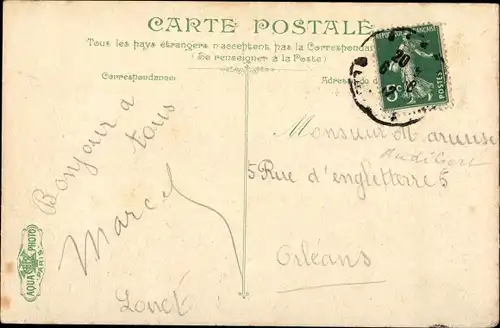 CARTE POSTALE
Tous les pays étrangers n'acceptent pas la Correspondan
(Se renseigner à la Poste)
Correspondance
Adresse du d
RÉPUBLIQUE FRANÇAISE
5c
POSTES
Bonjour a
tous
Marcel
Loiret
Monsieur
5 Rue d'engletterre 5
Orléans
AQUA PHOTO
PARIS